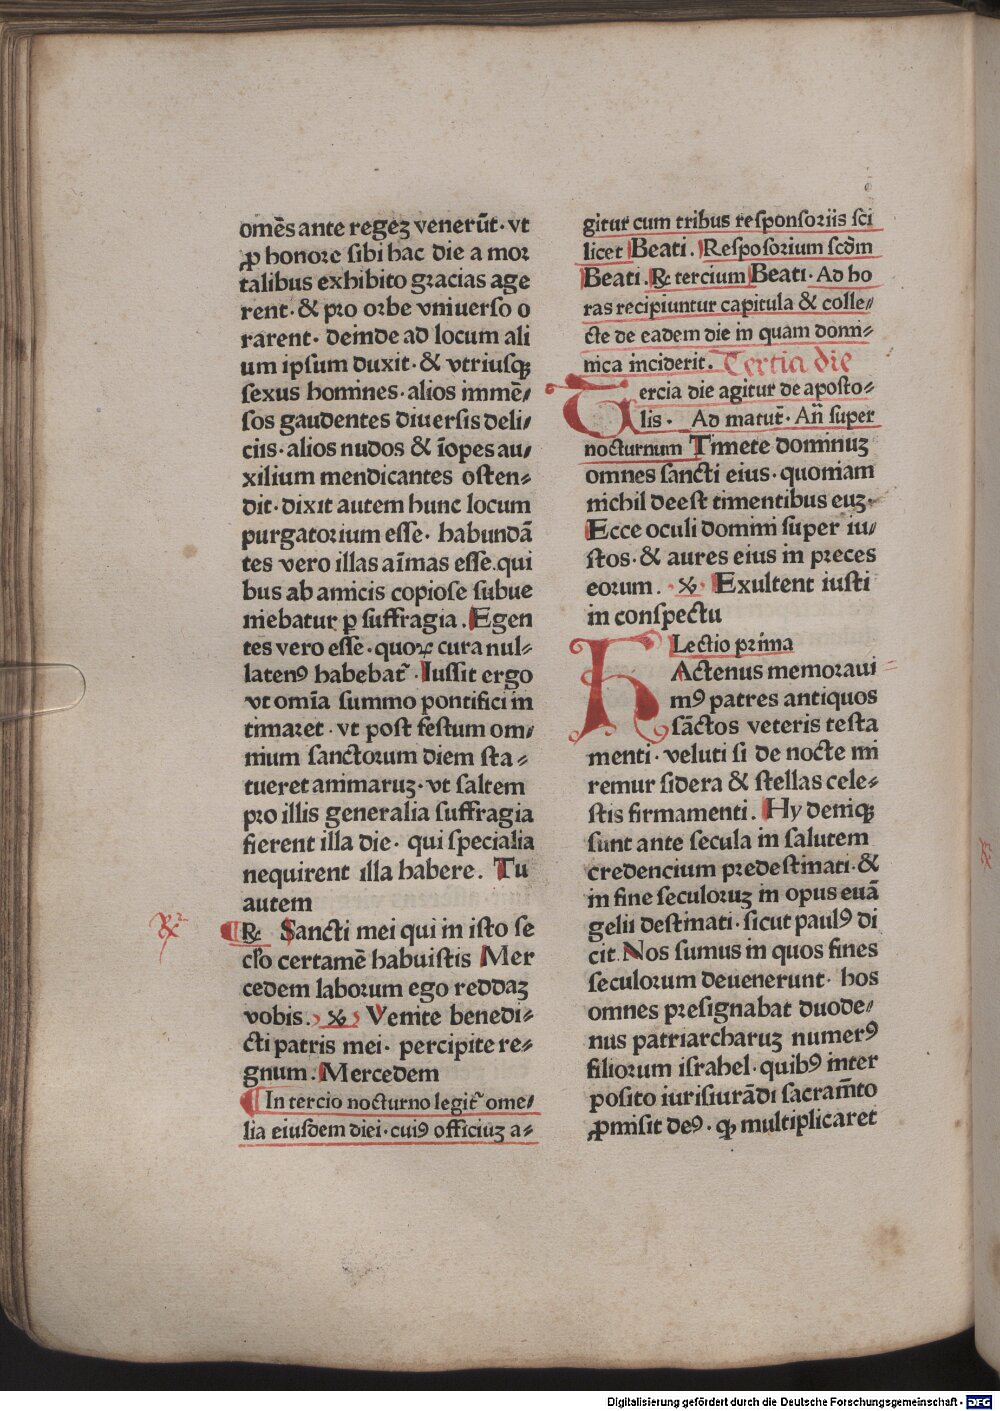 omēs ante regeꝫ venerūt· vt
ꝓ honore sibi hac die a mor
talibus exhibito gracias age
rent· & pro orbe vniuerso o
rarent· deinde ad locum ali
um ipsum duxit· & vtriusqꝫ
sexus homines· alios immē⸗
sos gaudentes diuersis deli⸗
ciis· alios nudos & īopes au⸗
xilium mendicantes osten⸗
dit· dixit autem hunc locum
purgatorium esse· habundā
tes vero illas aīmas esse. qui
bus ab amicis copiose subue
niebatur ꝑ suffragia. Egen
tes vero esse· quoꝝ cura nul⸗
latenꝰ habebat᷑· Iussit ergo
vt omīa summo pontifici in
timaret· vt post festum om⸗
nium sanctorum diem sta⸗
tueret animaruꝫ· vt saltem
pro illis generalia suffragia
fierent illa die· qui specialia
nequirent illa habere. Tu
autem
℟ Sancti mei qui in isto se
cl̄o certamē habuistis Mer
cedem laborum ego reddaꝫ
vobis. ℣ Venite benedi⸗
cti patris mei· percipite re⸗
gnum. Mercedem
In tercio nocturno legit᷑ ome⸗
lia eiusdem diei· cuiꝰ officiuꝫ a⸗
gitur cum tribus responsoriis sci
licet Beati. Resposorium scd̄m
Beati. ℟ tercium Beati· Ad ho
ras recipiuntur capitula & colle⸗
cte de eadem die in quam domi⸗
nica inciderit. Tertia die
Tercia die agitur de aposto⸗
lis· Ad matut̄· An̄ super
nocturnum Timete dominuꝫ
omnes sancti eius· quoniam
nichil deest timentibus euꝫ·
Ecce oculi domini super iu⸗
stos· & aures eius in preces
eorum. ℣ Exultent iusti
in conspectu
Lectio prima
HActenus memoraui
mꝰ patres antiquos
sāctos veteris testa
menti· veluti si de nocte mi
remur sidera & stellas cele⸗
stis firmamenti. Hy deniqꝫ
sunt ante secula in salutem
credencium predestinati· &
in fine seculoruꝫ in opus euā
gelii destinati· sicut paulꝰ di
cit Nos sumus in quos fines
seculorum deuenerunt· hos
omnes presignabat duode⸗
nus patriarcharuꝫ numerꝰ
filiorum israhel· quibꝰ inter
posito iurisiurādi sacram̄to
ꝓmisit deꝰ· qꝫ multiplicaret
Digitalisierung gefördert durch die Deutsche Forschungsgemeinschaft - DFG